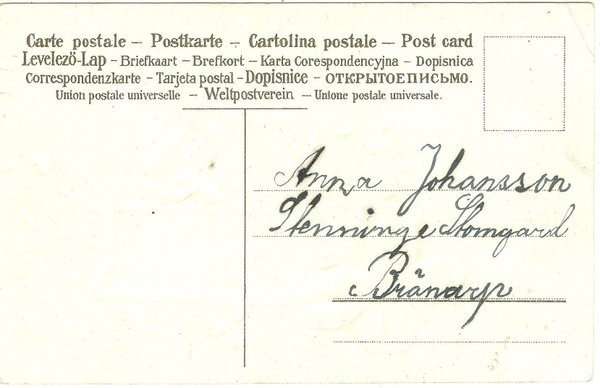 Carte postale – Postkarte – Cartolina postale – Post card
Levelezö-Lap – Briefkaart – Brefkort – Karta Corespondencyjna – Dopisnica
Correspondenzkarte – Tarjeta postal – Dopisnice – ОТКРЫТОЕПИСЬМО.
Union postale universelle – Weltpostverein – Unione postale universale.
Anna Johansson
Stenninge Stomgard
Bränarp